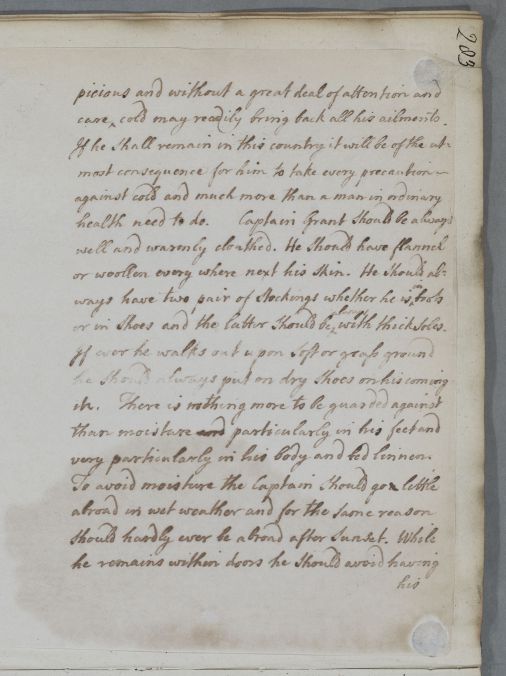 203
picious and without a great deal of attention and
care, cold may readily bring back all his ailments.
If he shall remain in this country it will be of the ut-
most consequence for him to take every precaution
against cold and much more than a man in ordinary
health need to do. Captain Grant should be always
well and warmly cloathed. He should have flannel
or woollen every where next his skin. He should al-
ways have two pair of stockings whether he is in boots
or in shoes and the latter should be with thick soles.
If ever he walks out upon soft or grass ground
he should always put on dry shoes on his coming
in. There is nothing more to be guarded against
than moisture and particularly in his feet and
very particularly in his body and bed linnen.
To avoid moisture the Captain should go little
abroad in wet weather and for the same reason
should hardly ever be abroad after sunset. While
he remains within doors he should avoid having
his